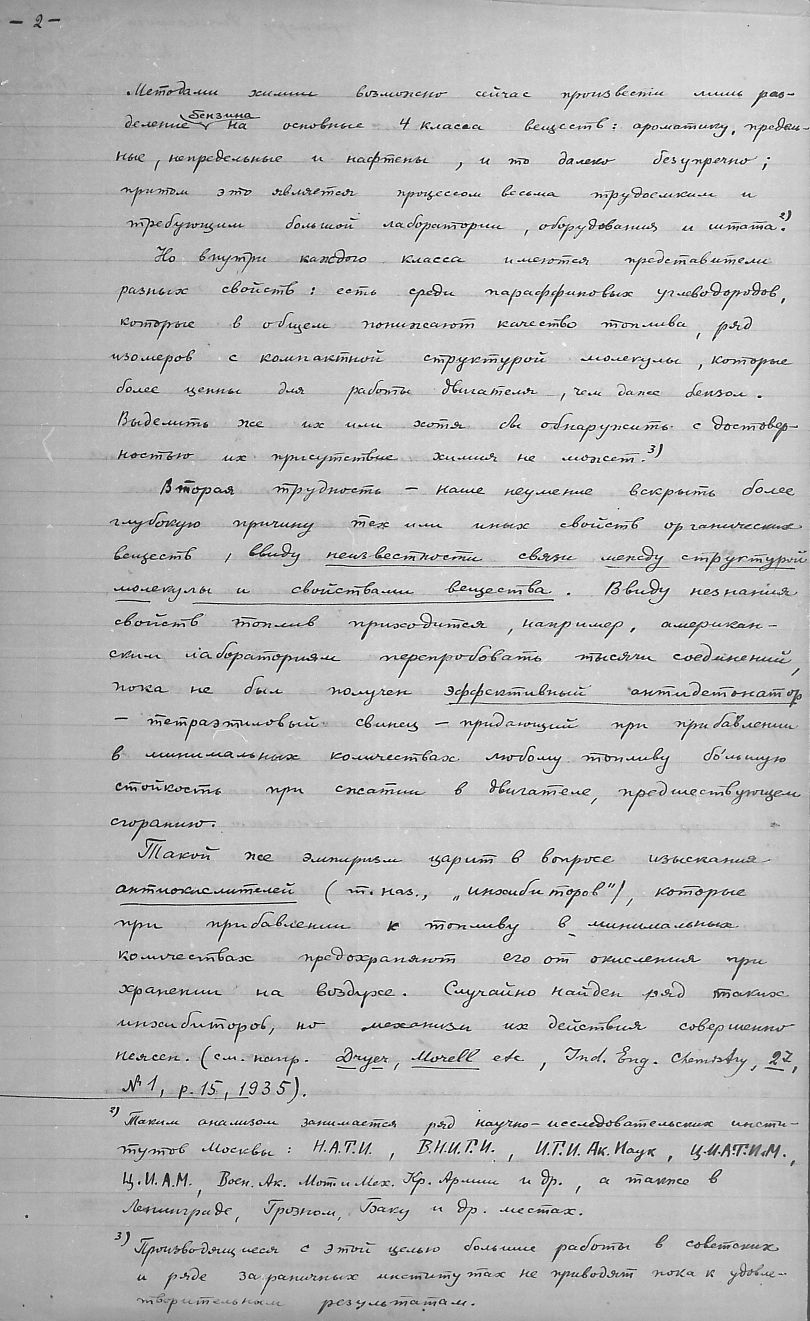 – 2 –
Методами химии возможно сейчас произвести лишь раз-
деление бензина на основные 4 класса веществ: ароматику, предель-
ные, непредельные и нафтены, и то далеко безупречно;
притом это является процессом весьма трудоемким и
требующим большой лаборатории, оборудования и штата.²⁾
Но внутри каждого класса имеются представители
разных свойств: есть среди параффиновых углеводородов,
которые в общем понижают качество топлива, ряд
изомеров с компактной структурой молекулы, которые
более ценны для работы двигателя, чем даже бензол.
Выделить же их или хотя бы обнаружить с достовер-
ностью их присутствие химия не может.³⁾
Вторая трудность – наше неумение вскрыть более
глубокую причину тех или иных свойств органических
веществ, ввиду неизвестности связи между структурой
молекулы и свойствами вещества. Ввиду незнания
свойств топлив приходится, например, американ-
ским лабораториям перепробовать тысячи соединений,
пока не был получен эффективный антидетонатор
– тетраэтиловый свинец – придающий при прибавлении
в минимальных количествах любому топливу бо́льшую
стойкость при сжатии в двигателе, предшествующем
сгоранию.
Такой же эмпиризм царит в вопросе изыскания
антиокислителей (т. наз., „инхибиторов"), которые
при прибавлении к топливу в минимальных
количествах предохраняют его от окисления при
хранении на воздухе. Случайно найден ряд таких
инхибиторов, но механизм их действия совершенно
неясен. (см. напр. Dryer, Morell etc, Ind. Eng. Chemistry, 27,
№1, p. 15, 1935).
²⁾ Таким анализом занимается ряд научно-исследовательских инсти-
тутов Москвы: Н.А.Т.И., В.Н.И.Г.И., И.Г.И. Ак. Наук, Ц.И.А.Т.И.М.,
Ц.И.А.М., Воен. Ак. Мот и Мех. Кр. Армии и др., а также в
Ленинграде, Грозном, Баку и др. местах.
³⁾ Производящиеся с этой целью большие работы в советских
и ряде заграничных институтах не приводят пока к удовле-
творительным результатам.